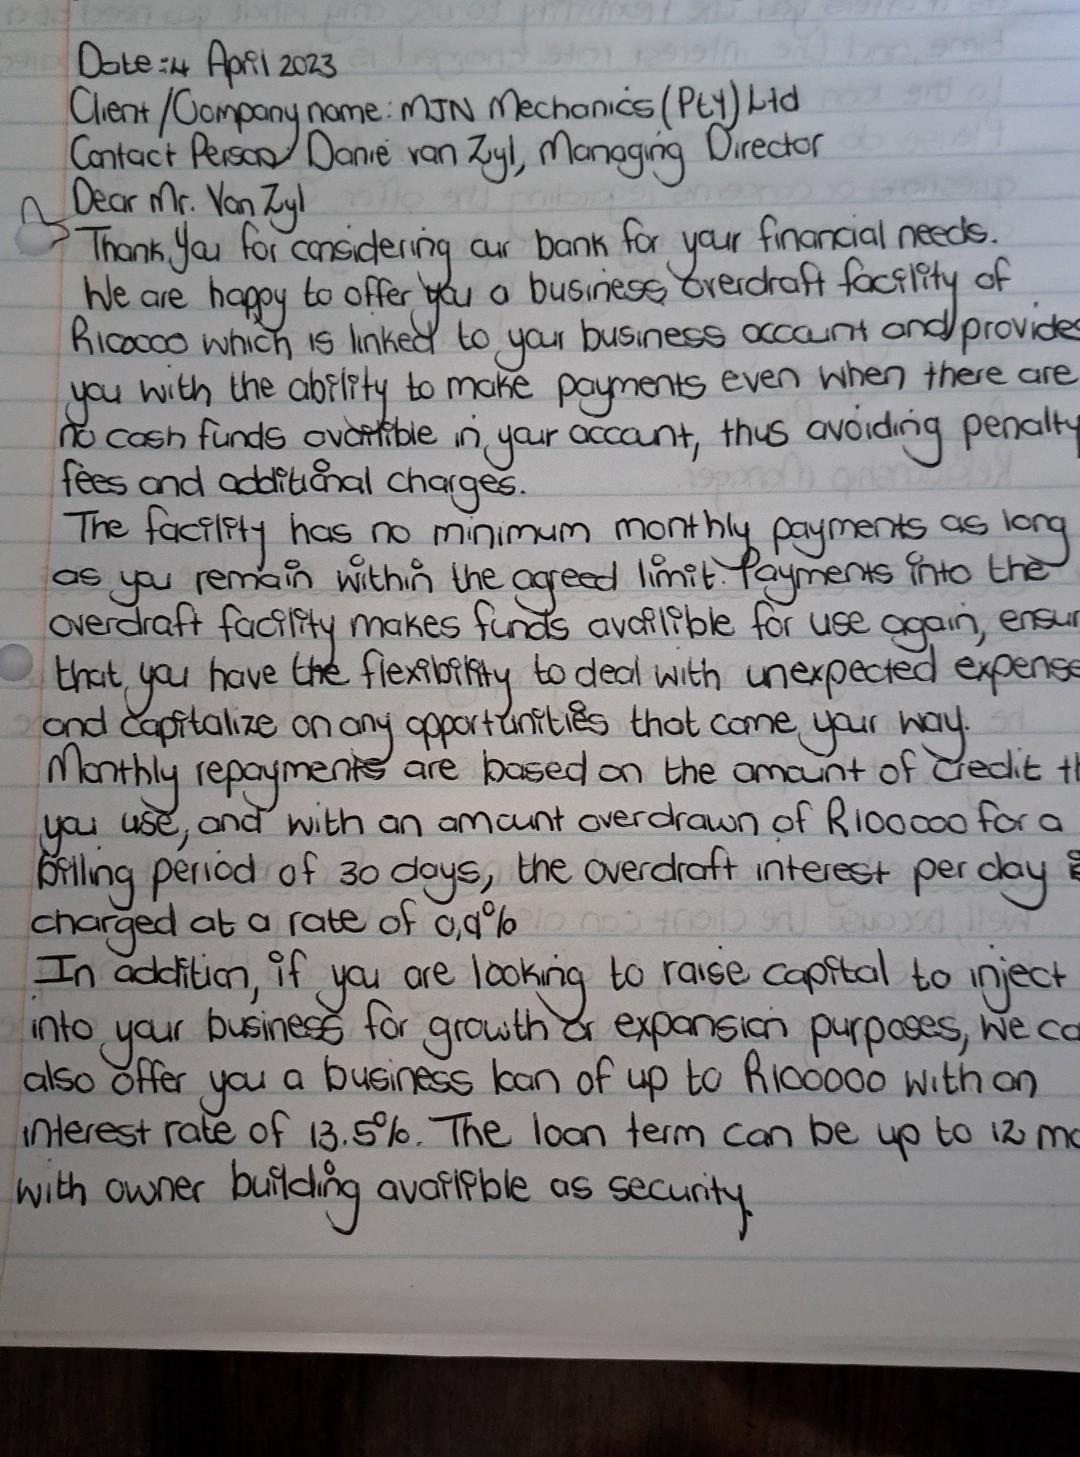 Date: 4 April 2023
Client/Company name: MJN Mechanics (Pty) Ltd
Contact Person Danie van Zyl, Managing Director
Dear Mr. Van Zyl
Thank you for considering our bank for your financial needs.
We are happy to offer you a business overdraft facility of
R100000 which is linked to your business account and provides
you with the ability to make payments even when there are
no cash funds availible in your account, thus avoiding penalty
fees and additional charges.
The facility has no minimum monthly payments as long
as you remain within the agreed limit. Payments into the
overdraft facility makes funds availible for use again, ensur
that you have the flexibility to deal with unexpected expense
and capitalize on any opportunities that come your way.
Monthly repayments are based on the amount of credit th
you use, and with an amount overdrawn of R100000 for a
billing period of 30 days, the overdraft interest per day
charged at a rate of 0,9%
In addition, if you are looking to raise capital to inject
into your business for growth or expansion purposes, we ca
also offer you a business loan of up to R100000 with an
interest rate of 13.5%. The loan term can be up to 12 mo
with owner building availible as security.